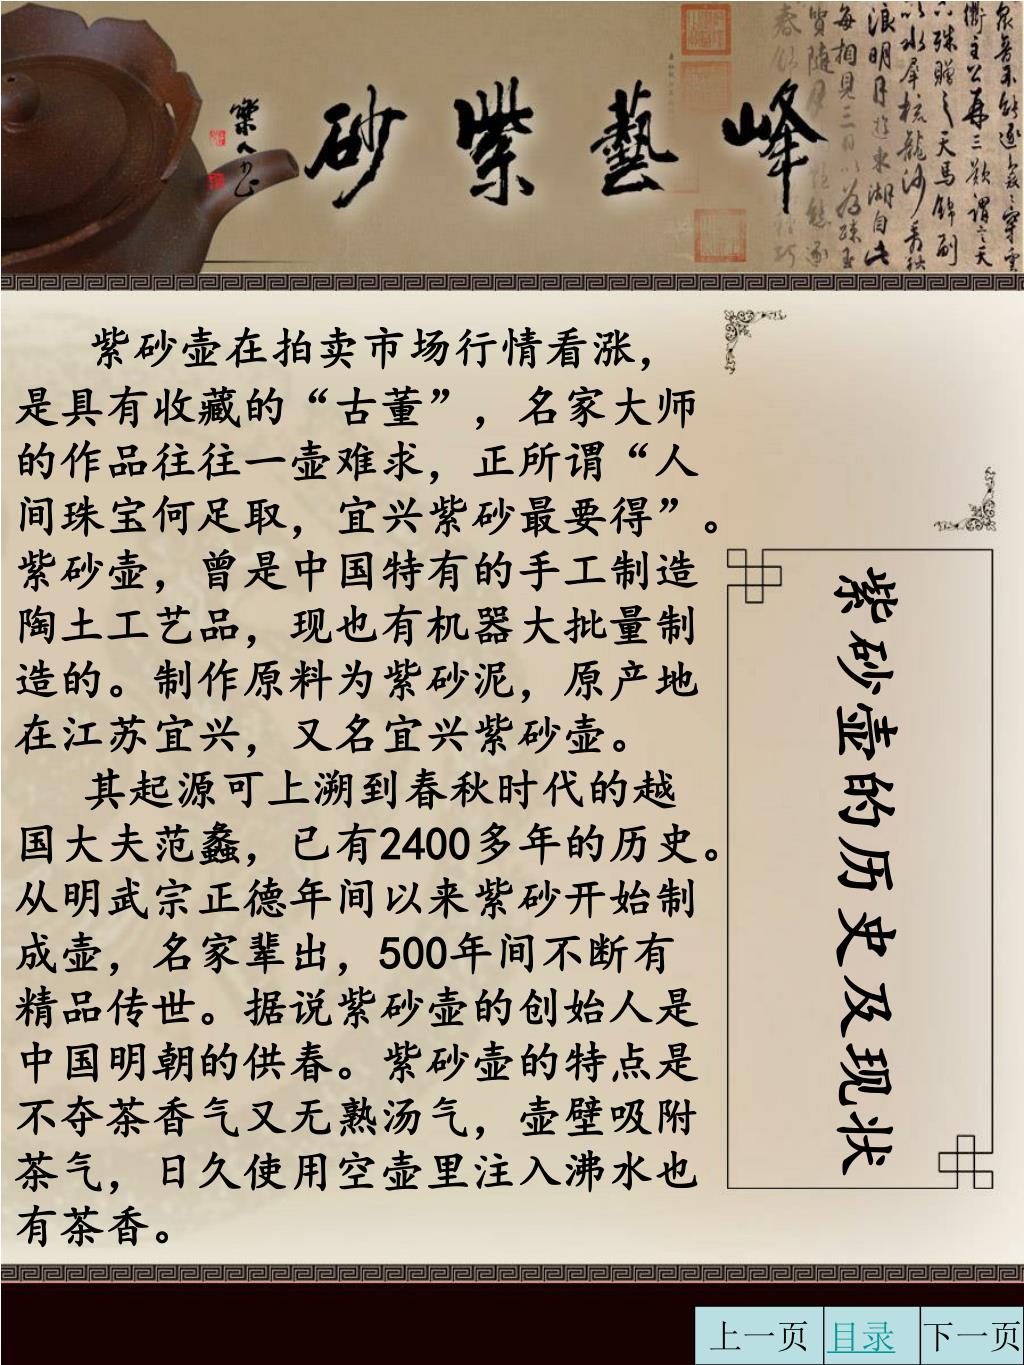 峰藝紫砂
紫砂壶在拍卖市场行情看涨，
是具有收藏的“古董”，名家大师
的作品往往一壶难求，正所谓“人
间珠宝何足取，宜兴紫砂最要得”。
紫砂壶，曾是中国特有的手工制造
陶土工艺品，现也有机器大批量制
造的。制作原料为紫砂泥，原产地
在江苏宜兴，又名宜兴紫砂壶。
其起源可上溯到春秋时代的越
国大夫范蠡，已有2400多年的历史。
从明武宗正德年间以来紫砂开始制
成壶，名家辈出，500年间不断有
精品传世。据说紫砂壶的创始人是
中国明朝的供春。紫砂壶的特点是
不夺茶香气又无熟汤气，壶壁吸附
茶气，日久使用空壶里注入沸水也
有茶香。
紫砂壶的历史及现状
上一页
目录
下一页